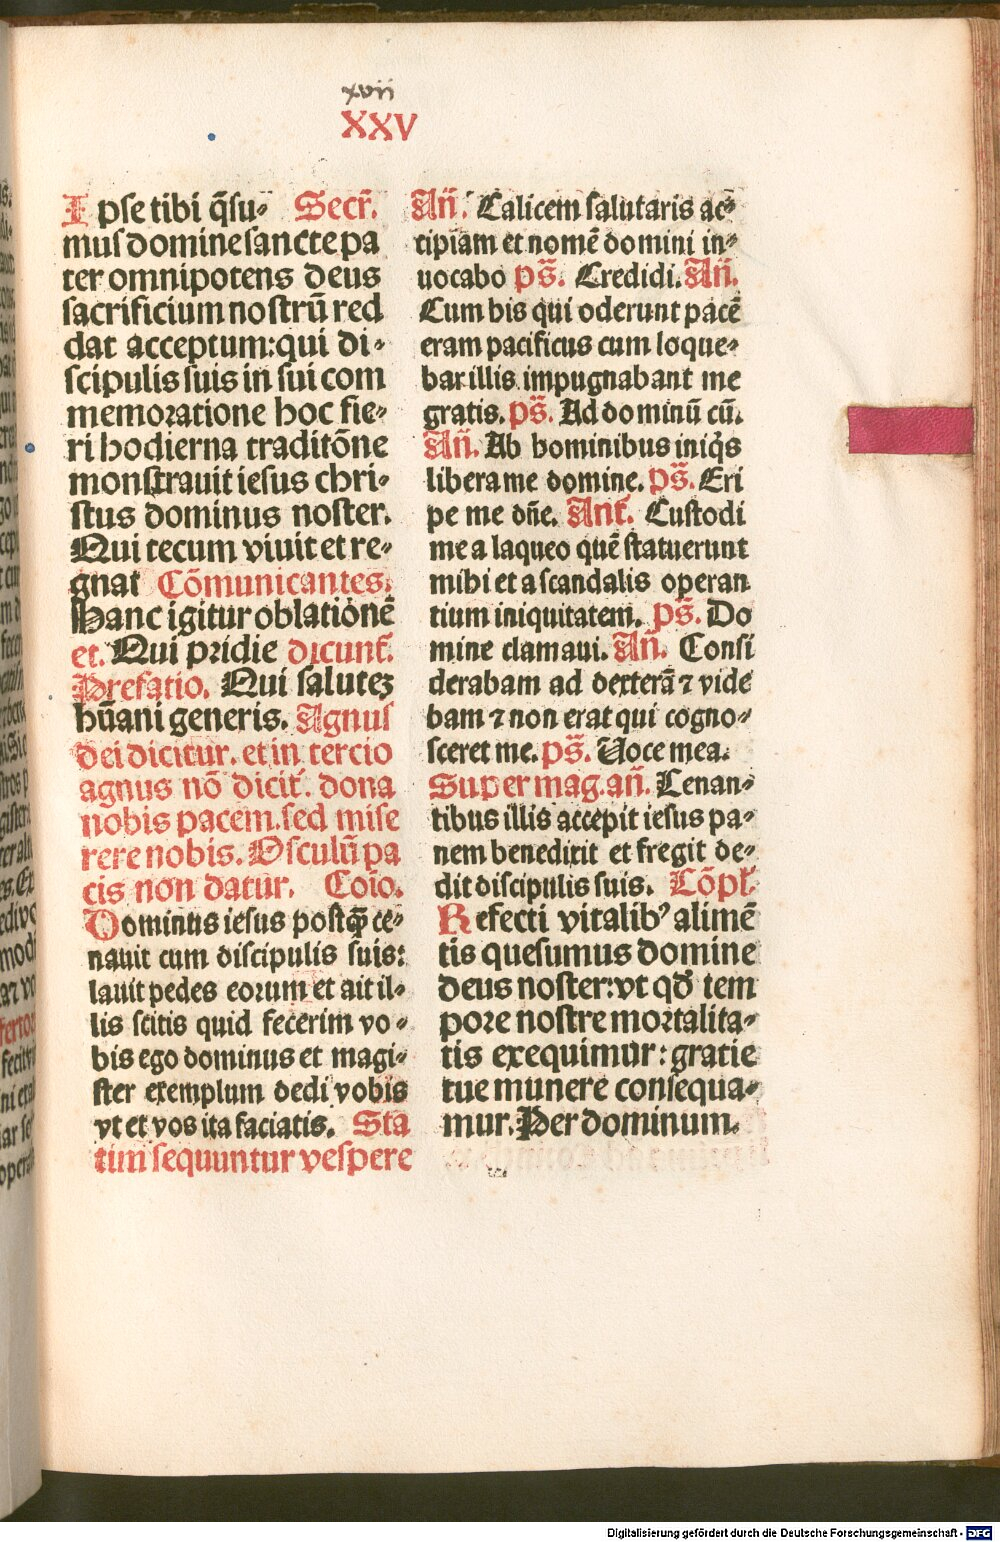 xvii
XXV
Ipse tibi q̃su⸗ Secr̃.
mus domine sancte pa
ter omnipotens deus
sacrificium nostrũ red
dat acceptum: qui di⸗
scipulis suis in sui com
memoratione hoc fie⸗
ri hodierna traditõne
monstrauit iesus chri⸗
stus dominus noster.
Qui tecum viuit et re⸗
gnat Cõmunicantes.
Hanc igitur oblationẽ
et. Qui pridie dicunt̃.
Prefatio. Qui salutez
hũani generis. Agnus
dei dicitur. et in tercio
agnus nõ dicit̃. dona
nobis pacem. sed mise
rere nobis. Osculũ pa
cis non datur. Coĩo.
Dominus iesus postq̃ ce⸗
nauit cum discipulis suis:
lauit pedes eorum et ait il⸗
lis scitis quid fecerim vo⸗
bis ego dominus et magi⸗
ster exemplum dedi vobis
vt et vos ita faciatis. Sta
tim sequuntur vespere
Añ. Calicem salutaris ac⸗
cipiam et nomẽ domini in⸗
uocabo ps̃. Credidi. Añ.
Cum his qui oderunt pacẽ
eram pacificus cum loque⸗
bar illis impugnabant me
gratis. ps̃. Ad dominũ cũ.
Añ. Ab hominibus iniq̃s
libera me domine. ps̃. Eri
pe me dñe. Ant̃. Custodi
me a laqueo quẽ statuerunt
mihi et a scandalis operan
tium iniquitatem. ps̃. Do
mine clamaui. Añ. Consi
derabam ad dexterã ⁊ vide
bam ⁊ non erat qui cogno⸗
sceret me. ps̃. Uoce mea.
Super mag. añ. Cenan⸗
tibus illis accepit iesus pa⸗
nem benedixit et fregit de⸗
dit discipulis suis. Cõpl̃.
Refecti vitalibꝰ alimẽ
tis quesumus domine
deus noster: vt qđ tem
pore nostre mortalita⸗
tis exequimur: gratie
tue munere consequa⸗
mur. Per dominum.
Digitalisierung gefördert durch die Deutsche Forschungsgemeinschaft - DFG